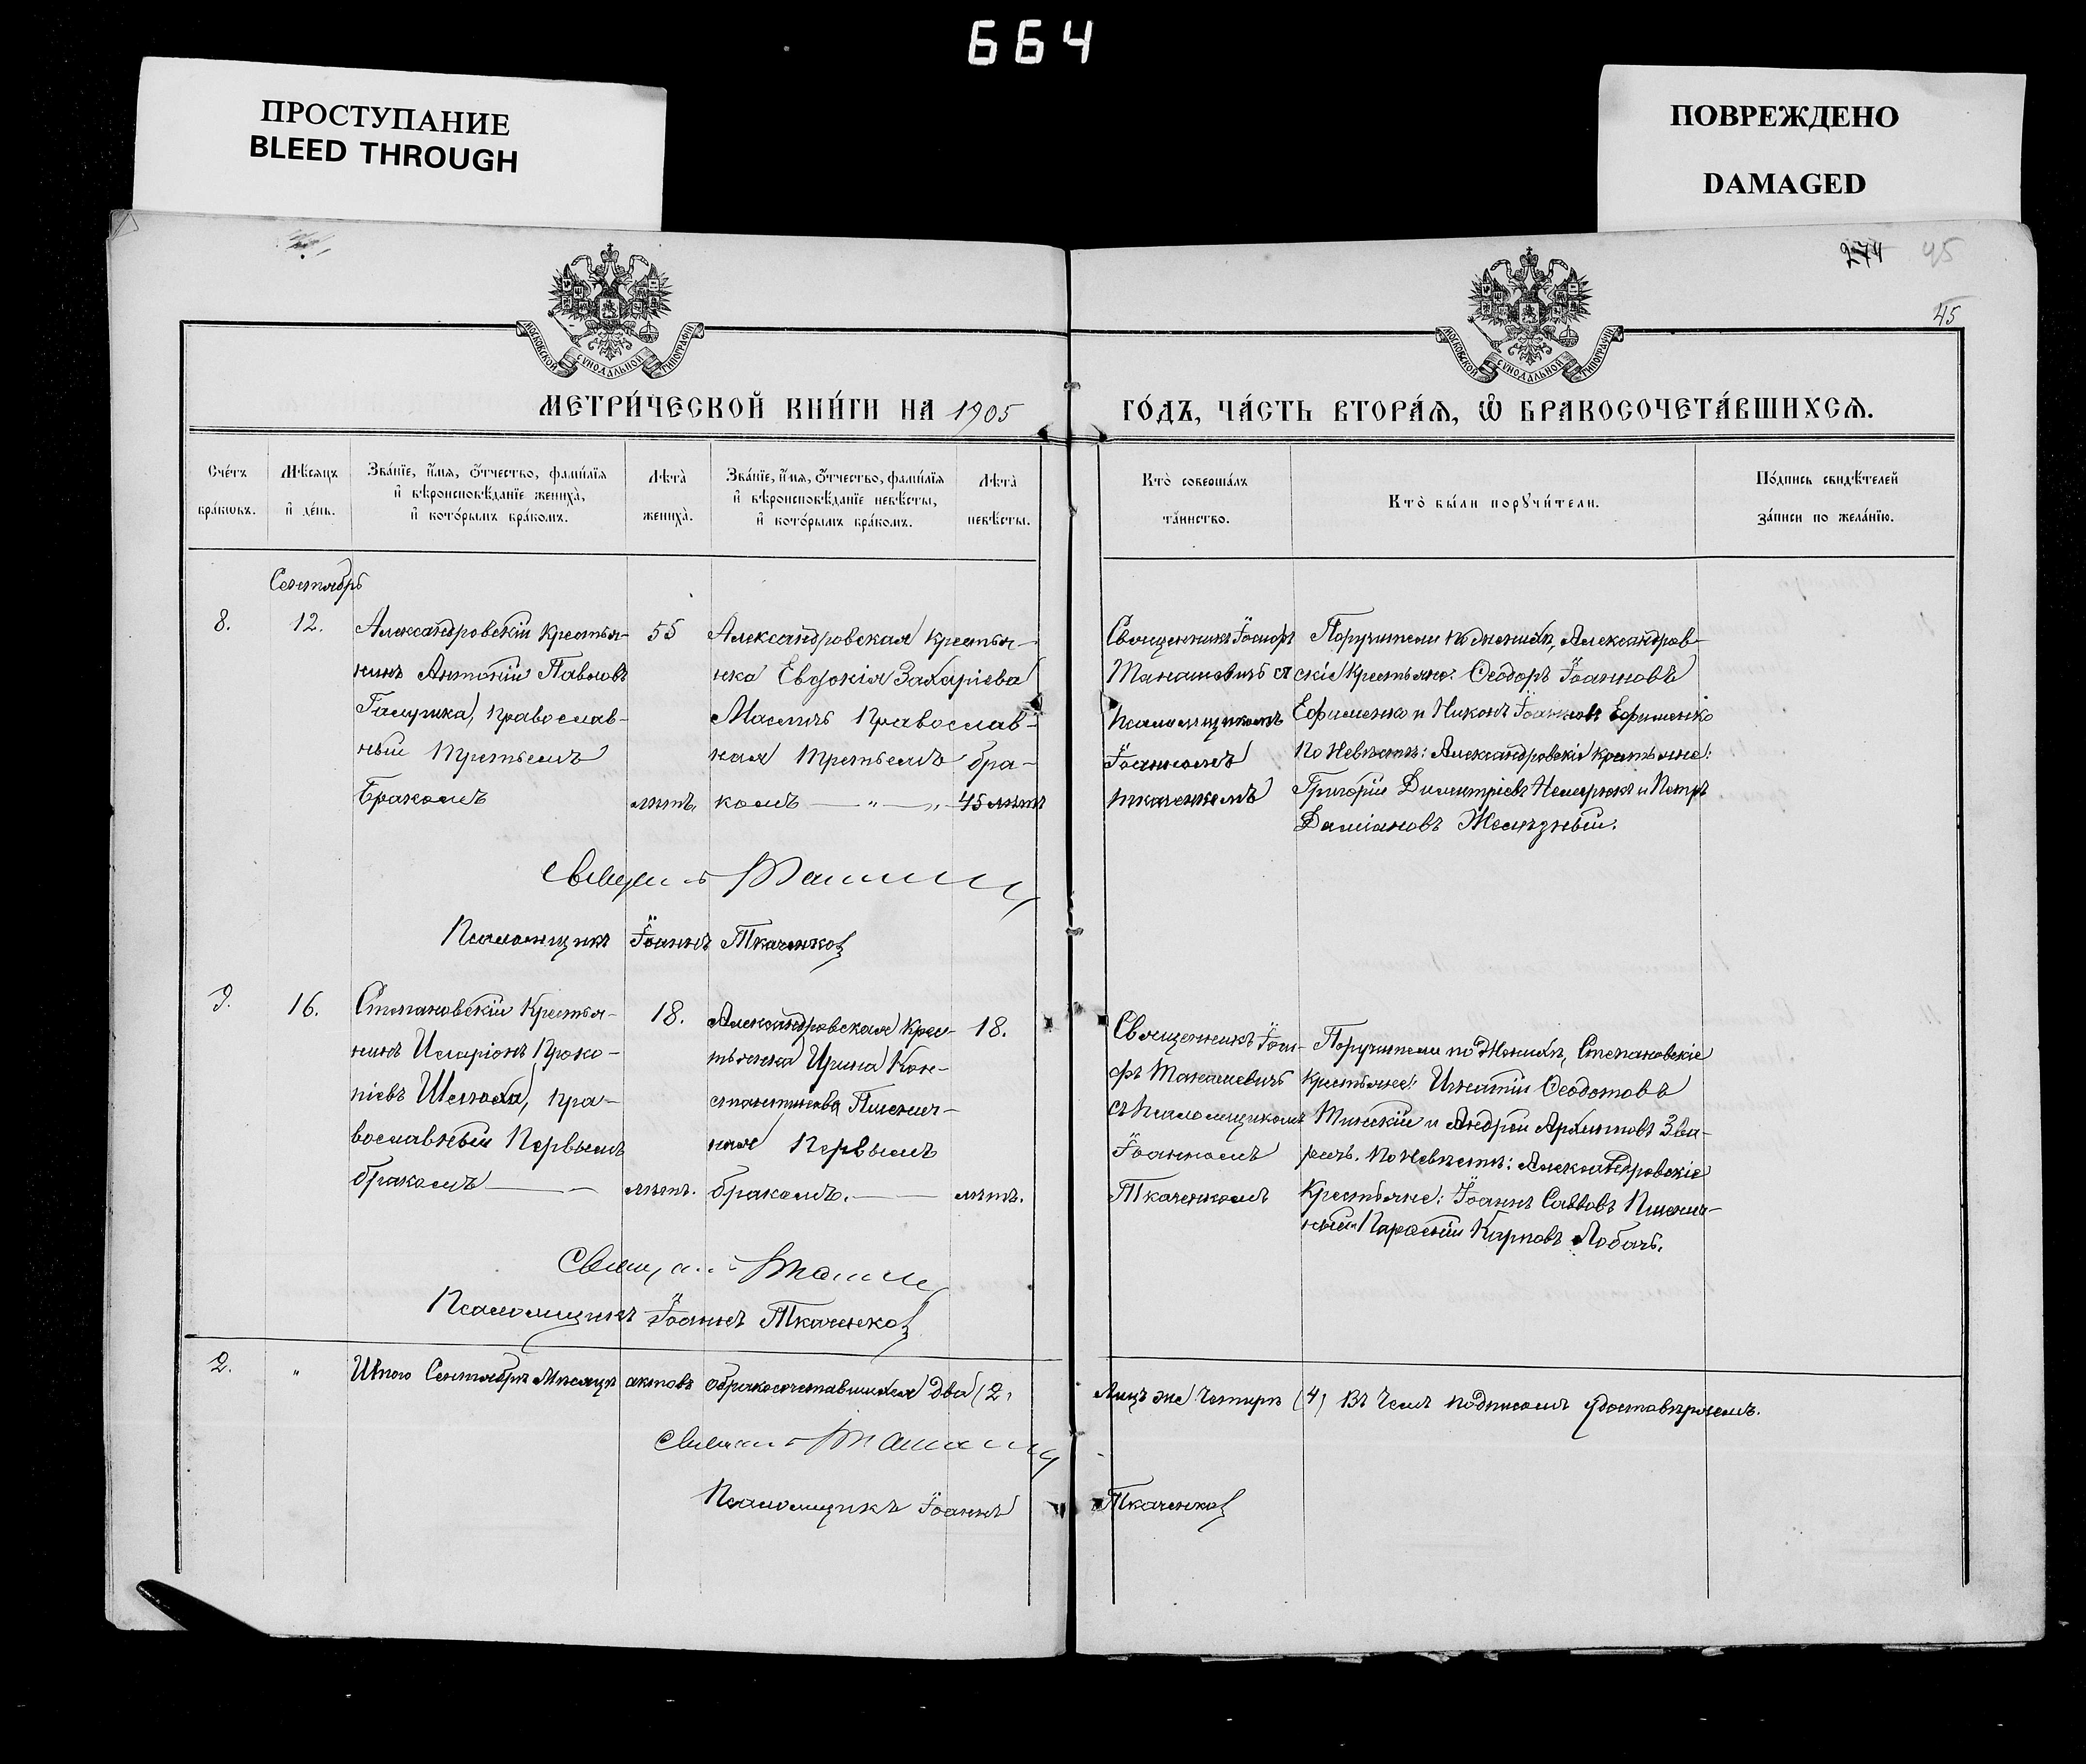 664
ПРОСТУПАНИЕ
BLEED THROUGH
ПОВРЕЖДЕНО
DAMAGED
274 45
45
МОСКОВСКОЙ СѴНОДАЛЬНОЙ ТИПОГРАФІИ
МОСКОВСКОЙ СѴНОДАЛЬНОЙ ТИПОГРАФІИ
МЕТРИ́ЧЕСКОЙ КНИ́ГИ НА 1905
ГО́ДЪ, ЧА́СТЬ ВТОРА́Ѧ, Ѽ БРАКОСОЧЕТА́ВШИХСѦ.
Сче́тъ
бра́кѡвъ.
Мѣ́сяцъ
и҆ де́нь.
Зва́нїе, и҆́мя, ѻ҆́тчество, фами́лїя
и҆ вѣроисповѣ́данїе жениха̀,
и҆ кото́рымъ бра́комъ.
Лѣ́та̀
жениха̀.
Зва́нїе, и҆́мя, ѻ҆́тчество, фами́лїя
и҆ вѣроисповѣ́данїе невѣ́сты,
и҆ кото́рымъ бра́комъ.
Лѣ́та̀
невѣ́сты.
Кто̀ соверша́лъ
та́инство.
Кто̀ бы́ли порꙋчи́тели.
По́дпись свидѣ́телей
за́писи по жела́нїю.
Сентябрь
8.
12.
Александровскій крестья-
нинъ Антоній Павловъ
Галушка, православ-
ный третьемъ
бракомъ
55
лѣтъ.
Александровская крестья-
нка Евдокія Захаріева
Маслич Православ-
ная третьемъ бра-
комъ — „ — „
45 лѣтъ
Священникъ Іосифъ
Танашевичъ съ
псаломщикомъ
Іоанномъ
Ткаченкомъ
Поручители по женихѣ, Александров-
скіе крестьяне: Ѳеодоръ Іоанновъ
Ефименко и Никонъ Іоанновъ Ефименко
По Невѣстѣ: Александровскіе крестьяне:
Григорій Димитріевъ Немерюкъ и Петръ
Даміановъ Желѣзный.
Псаломщикъ Іоаннъ Ткаченко
9.
16.
Степановскій Крестья-
нинъ Иларіонъ Проко-
піевъ Шелюха, пра-
вославный Первымъ
бракомъ —
18.
лѣтъ.
Александровская Крес-
тьянка Ирина Кон-
стантинова Пшенич-
ная Первымъ
бракомъ. —
18.
лѣтъ.
Священникъ Іоси-
фъ Танашевичъ
съ псаломщикомъ
Іоанномъ
Ткаченкомъ
Поручители по Женихѣ, Степановскіе
Крестьяне: Игнатій Ѳеодотовъ
и Андрей Архиповъ Зва-
ричъ. По Невѣстѣ: Александровскіе
Крестьяне: Іоаннъ Савовъ Пшенич-
ный и Парфеній Карповъ Лобачъ.
Псаломщикъ Іоаннъ Ткаченко
2.
„
Итого Сентябрѣ Мѣсяцѣ актовъ обракосочетавшихся два (2)
Лицъ же Четыре (4) Въ Чемъ подписомъ удостовѣряемъ.
Псаломщикъ Іоаннъ
Ткаченко